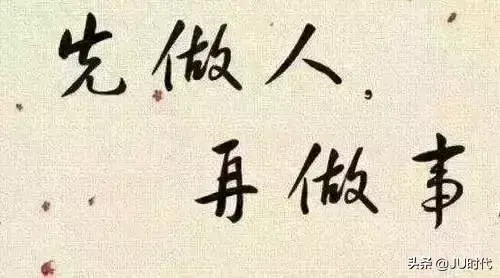 先做人，
再做事
头条 @JU时代